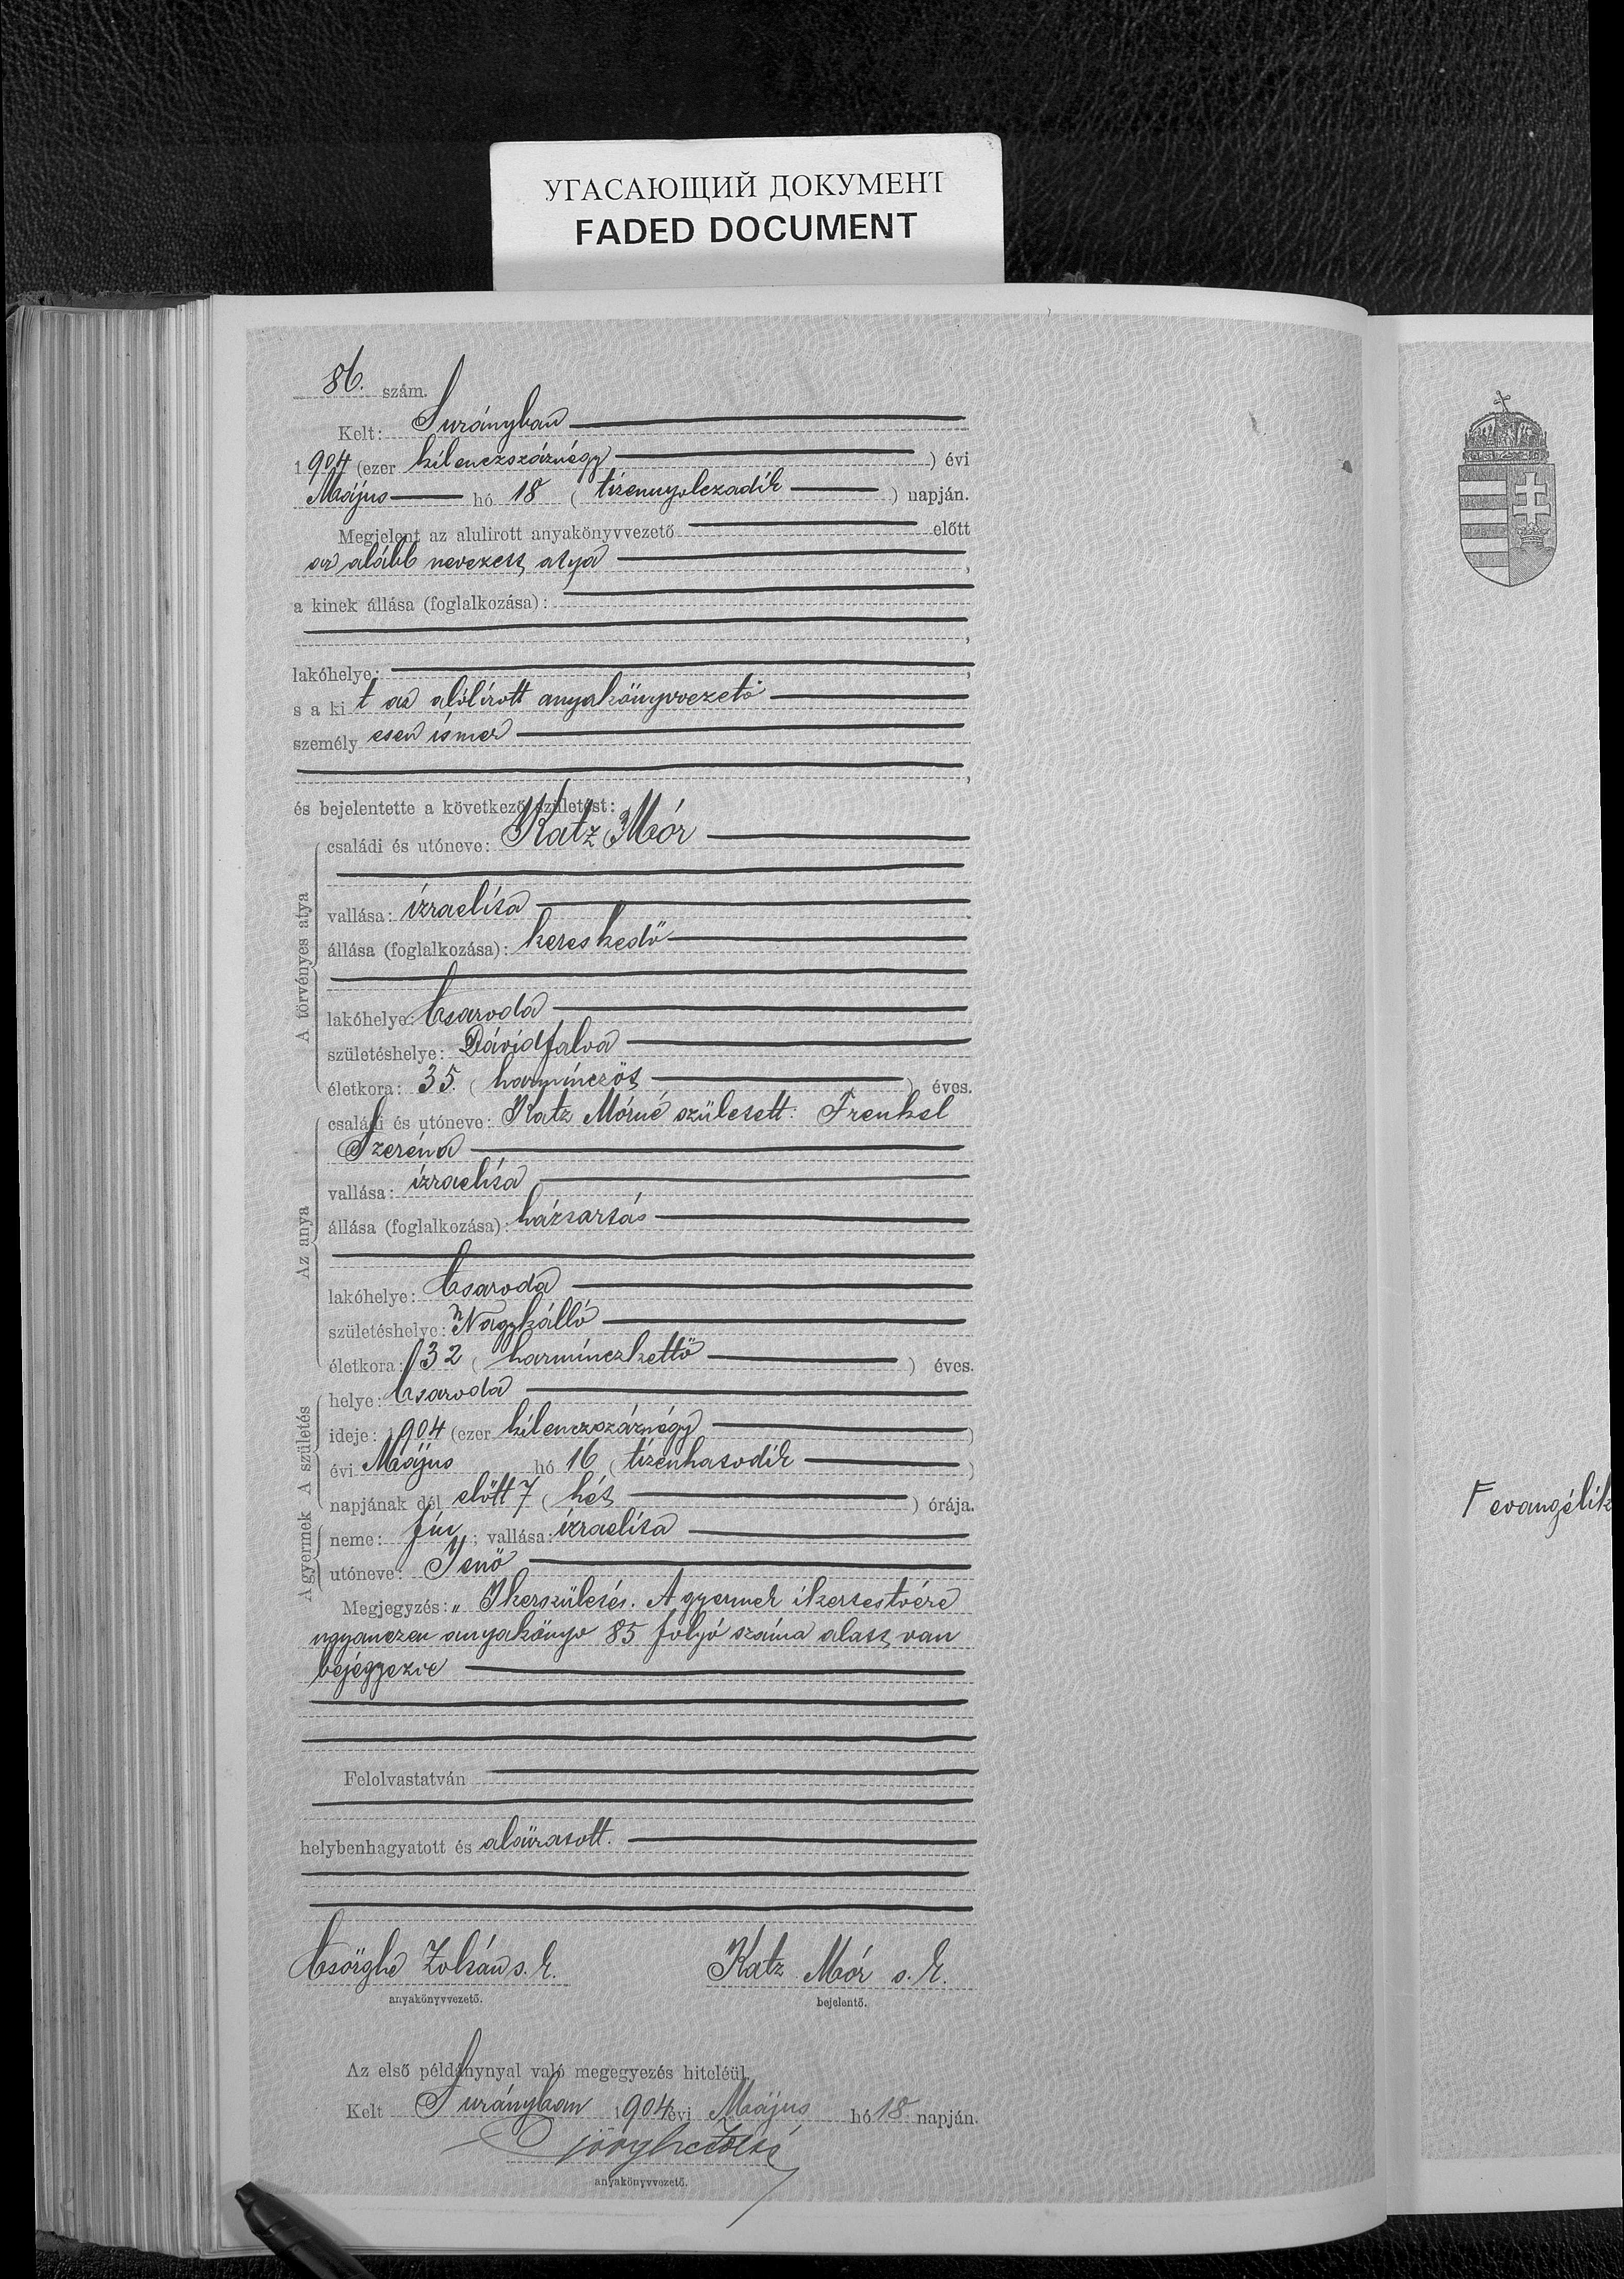 УГАСАЮЩИЙ ДОКУМЕНТ
FADED DOCUMENT
86. szám.
Kelt: Surányban
1904 (ezer kilenczszáznégy) évi
Május hó 18 (tizennyolczadik) napján.
Megjelent az alulirott anyakönyvvezető előtt
az alább nevezett atya,
a kinek állása (foglalkozása):
,
lakóhelye: ,
s a kit az alólírott anyakönyvvezető
személyesen ismer
,
és bejelentette a következő születést:
A törvényes atya
családi és utóneve: Katz Mór
vallása: izraelita
állása (foglalkozása): kereskedő
lakóhelye: Csaroda
születéshelye: Dávidfalva
életkora: 35. (harminczöt) éves.
Az anya
családi és utóneve: Katz Mórné született: Frenkel
Szeréna
vallása: izraelita
állása (foglalkozása): háztartás
lakóhelye: Csaroda
születéshelye: Nagykálló
életkora: 32 (harminczkettő) éves.
A születés
helye: Csaroda
ideje: 1904 (ezer kilenczszáznégy)
évi Május hó 16 (tizenhatodik)
napjának dél előtt 7 (hét) órája.
A gyermek
neme: fiu; vallása: izraelita
utóneve: Jenő
Megjegyzés: „ Ikerszületés. A gyermek ikertestvére
ugyanezen anyakönyv 85 folyó száma alatt van
bejegyezve
Felolvastatván
helybenhagyatott és aláiratott.
Csörghe Zoltán s. k. Katz Mór s. k.
anyakönyvvezető. bejelentő.
Az első példánynyal való megegyezés hiteléül.
Kelt Surányban 1904 évi Május hó 18 napján.
anyakönyvvezető.
evangélik